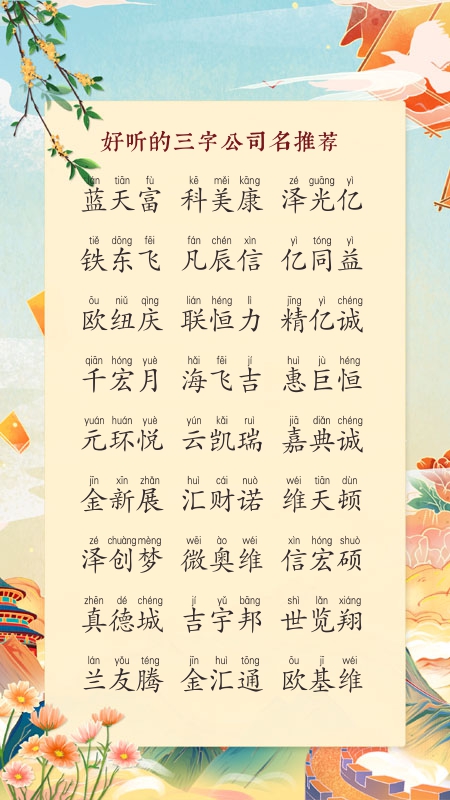 好听的三字公司名推荐
lán tiān fù kē měi kāng zé guāng yì
蓝天富 科美康 泽光亿
tiě dōng fēi fán chén xìn yì tóng yì
铁东飞 凡辰信 亿同益
ōu niǔ qìng lián héng lì jīng yì chéng
欧纽庆 联恒力 精亿诚
qiān hóng yuè hǎi fēi jí huì jù héng
千宏月 海飞吉 惠巨恒
yuán huán yuè yún kǎi ruì jiā diǎn chéng
元环悦 云凯瑞 嘉典诚
jīn xīn zhǎn huì cái nuò wéi tiān dùn
金新展 汇财诺 维天顿
zé chuàng mèng wēi ào wéi xìn hóng shuò
泽创梦 微奥维 信宏硕
zhēn dé chéng jí yǔ bāng shì lǎn xiáng
真德城 吉宇邦 世览翔
lán yǒu téng jīn huì tōng ōu jī wéi
兰友腾 金汇通 欧基维